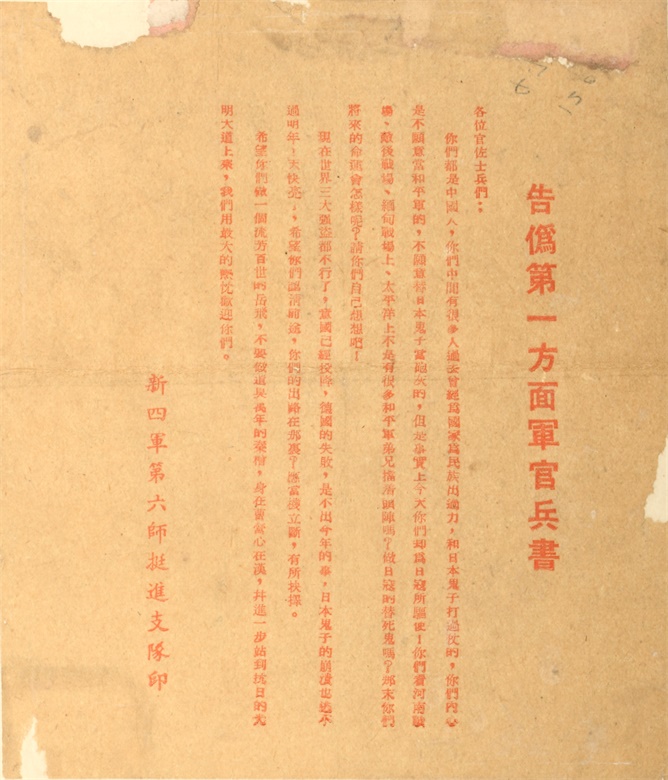 告僞第一方面軍官兵書
各位官佐士兵們：
你們都是中國人，你們中間有很多人過去曾經爲國家爲民族出過力，和日本鬼子打過仗的，你們內心
是不願意當和平軍的，不願意替日本鬼子當砲灰的，但是事實上今天你們却爲日寇所驅使！你們看河南戰
場、敵後戰場、緬甸戰場上、太平洋上不是有很多和平軍弟兄擋着頭陣嗎？做日寇的替死鬼嗎？那末你們
將來的命運會怎樣呢？請你們自己想想吧！
現在世界三大强盜都不行了，意國已經投降，德國的失敗，是不出今年的事，日本鬼子的崩潰也逃不
過明年，天快亮了，希望你們認清前途，你們的出路在那裏？應當機立斷，有所抉擇。
希望你們做一個流芳百世的岳飛，不要做遺臭萬年的秦檜，身在曹營心在漢，幷進一步站到抗日的光
明大道上來，我們用最大的熱忱歡迎你們。
新四軍第六師挺進支隊印